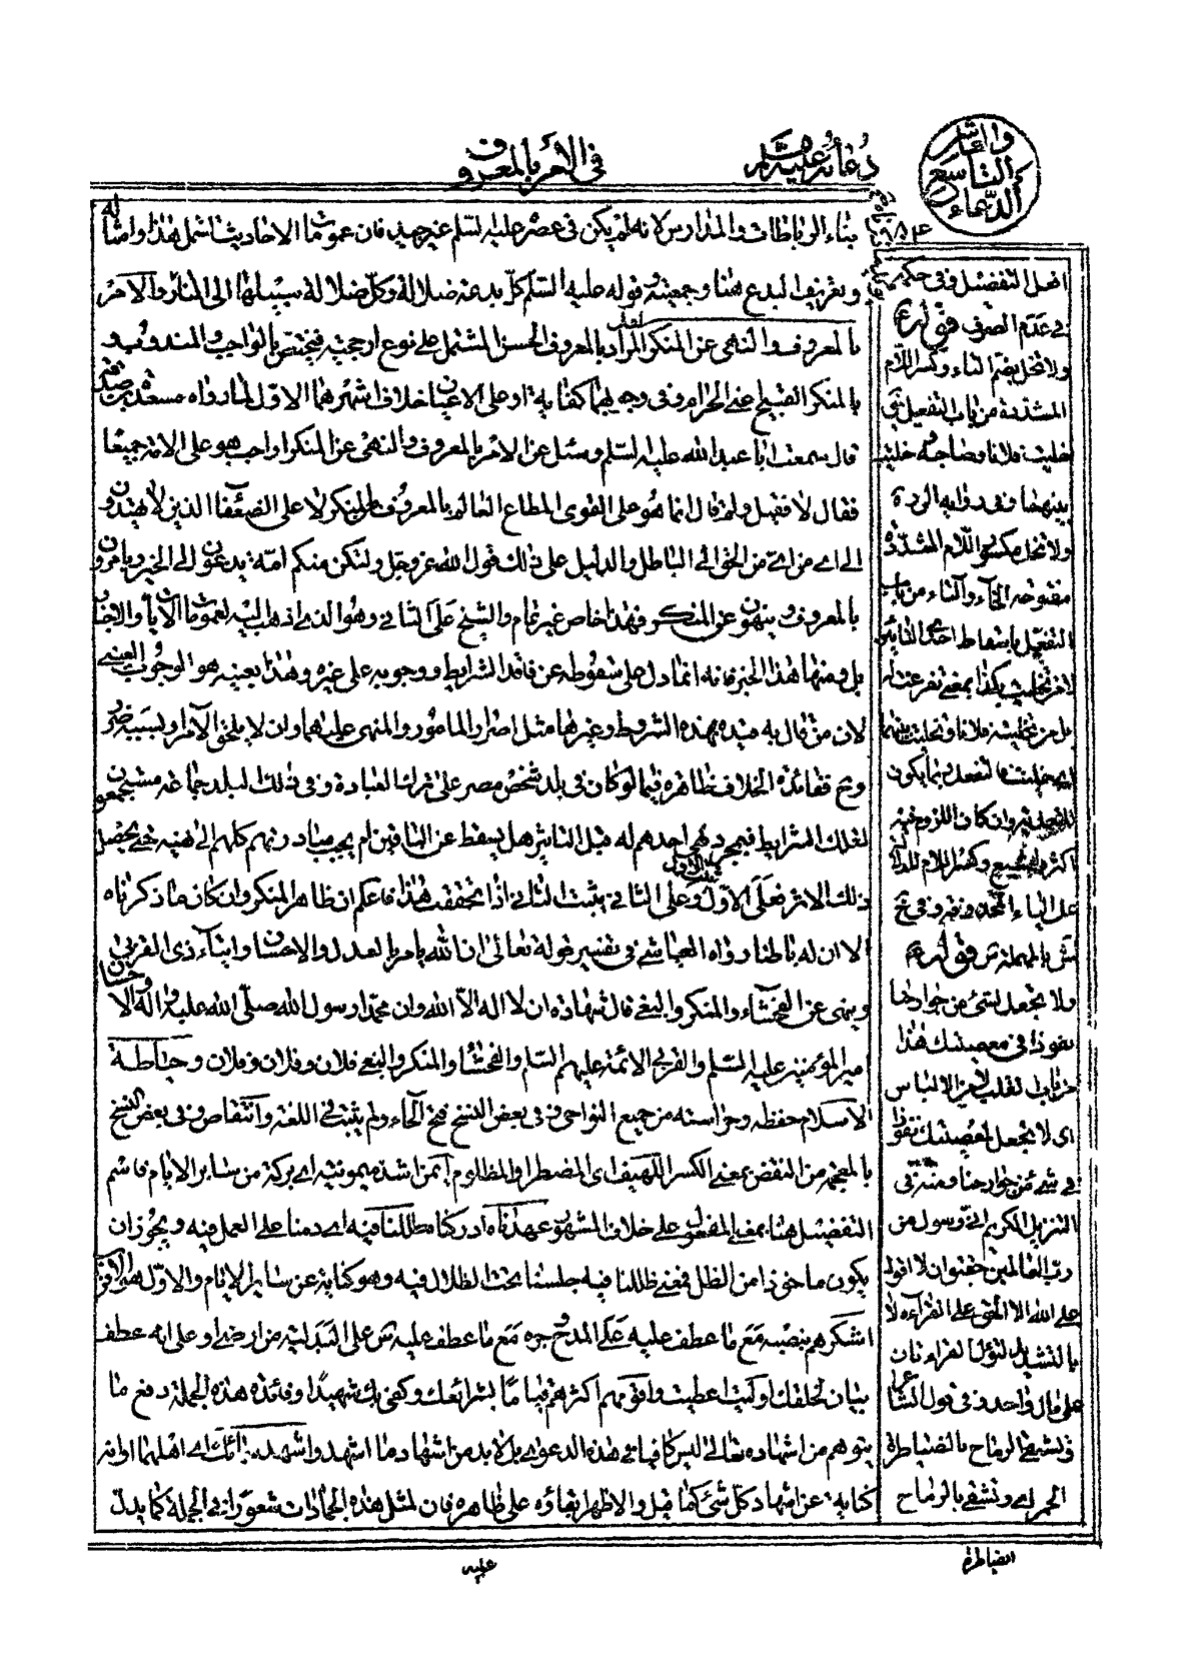 في الأمر بالمعروف
دعائه عليه السلم
بناء الرباطات والمدارس لانه لم يكن في عصره عليه السلم غير جيد فان عمومات الاحاديث تشمل هذا وامثاله
وتعريف البدع هنا وجمعيته قوله عليه السلم كل بدعة ضلالة وكل ضلالة سبيلها الى النار والامر
بالمعروف والنهى عن المنكر المراد بالمعروف الحسن المشتمل على نوع ارجحية فيختص بالواجب والمندوب
بالمنكر القبيح اعنى الحرام وفى وجوبهما كفاية او على الاعيان خلاف اشهرهما الاول لما رواه مسعدة بن صدقة
قال سمعت ابا عبد الله عليه السلم وسئل عن الامر بالمعروف والنهى عن المنكر اواجب هو على الامة جميعا
فقال لا فقيل ولم قال انما هو على القوى المطاع العالم بالمعروف من المنكر لا على الضعفاء الذين لا يهتدون
الى اى من اى من الحق الى الباطل والدليل على ذلك قول الله عز وجل ولتكن منكم امة يدعون الى الخير ويأمرون
بالمعروف وينهون عن المنكر فهذا خاص غير عام والشيخ على الثانى وهو الذى اذهب اليه لعمومات الآيات والاخبار
بل ومنها هذا الخبر فانه انما دل على سقوطه عن فاقد الشرايط ووجوبه على غيره وهذا بعينه هو الوجوب العينى
لان من قال به قيده بهذه الشروط وغيرها مثل اصرار المامور والمنهى عليهما وان لا يلحق الآمر بسببه ضرر
وح ففائدة الخلاف ظاهرة فيما لو كان في بلد شخص مصر على ترك العبادة وفى ذلك البلد جماعة مستجمعون
لتلك الشرايط فبمجرد نهى احدهم له قبل التاثير هل يسقط عن الباقين ام يجب مبادرتهم كلهم الى نهيه حتى يحصل
ذلك الاثر فعلى الاول وعلى الثانى يثبت الثانى اذا تحققت هذا فاعلم ان ظاهر المنكر وان كان ما ذكرناه
الا ان له باطنا رواه العياشى في تفسير قوله تعالى ان الله يامر بالعدل والاحسان وايتاء ذى القربى
وينهى عن الفحشاء والمنكر والبغى قال شهادة ان لا اله الا الله وان محمدا رسول الله صلى الله عليه واله والاحسان
امير المؤمنين عليه السلم والقربى الائمة عليهم السلم والفحشاء والمنكر والبغى فلان وفلان وفلان وحياطة
الاسلام حفظه وحراسته من جميع النواحى وفى بعض النسخ فتح الحاء ولم يثبت في اللغة وانتقاص وفى بعض النسخ
بالمعجمة من النقض بمعنى الكسر اللهيف اى المضطر او المظلوم ايمن اشد ميمونية اى بركة من ساير الايام فاسم
التفضيل هنا بمعنى المفعول على خلاف المشهور عهدناه ادركناه ظللنا فيه اى دمنا على العمل فيه ويجوز ان
يكون ماخوذا من الظل فمعنى ظللنا فيه جلسنا تحت الظلال فيه وهو كناية عن ساير الايام والاول هو الاوفق
اشكرهم بنصبه مع ما عطف عليه على المدح وجره مع ما عطف عليه على البدلية من ارضى او على انه عطف
بيان لخلقك اوليت اعطيت واقومهم اكثرهم قياما بشرائعك وكفى بك شهيدا وفائدة هذه الجملة دفع ما
يتوهم من اشهاده تعالى ليس كافيا في هذه الدعوى بل لابد من اشهاد ما اشهد واشهد سمائك اى اهلهما اوانه
كناية عن اشهاد كل شئ كما قيل والاظهر بقاؤه على ظاهره فان لمثل هذه الجمادات شعورا في الجملة كما يدل
عليه
والعاشر
التاسع
الدعاء
افعل التفضيل وفى حكمه
في عدم الصرف ق له ره
ولا تخل بضم التاء وكسر اللام
المشددة من باب التفعيل تقول
خليت فلانا وصاحبه وخليت
بينهما وفى رواية الردة
ولا تخل مكسورة اللام المشددة
مفتوحة الخاء والتاء من باب
التفعل باسقاط احدى التائين
لا من تخليت بكذا بمعنى تفرغت له
بل من خليت فلانا وتخليت بينهما
اى خليت فالتفعل ربما يكون
للتعدية وان كان اللزوم فيه
اكثر
على الياء المتحدة وغيره وفى نسخ
س بالمهملة س ق له ره
ولا تجعل لشئ من جوارحنا
نفوذا في معصيتك هذا
من باب القلب لا من الالباس
اى لا تجعل لمعصيتك نفوذا
في شئ من جوارحنا ومنه في
التنزيل الكريم انى رسول من
رب العالمين حقيق ان لا اقول
على الله الا الحق على القراءة لا
بالتشديد لتؤل القراءتان
على مآل واحد وفى قول الشاعر
وتشقى الرماح بالضياطرة
الحمر اى وتشقى بالرماح
الضياطرة